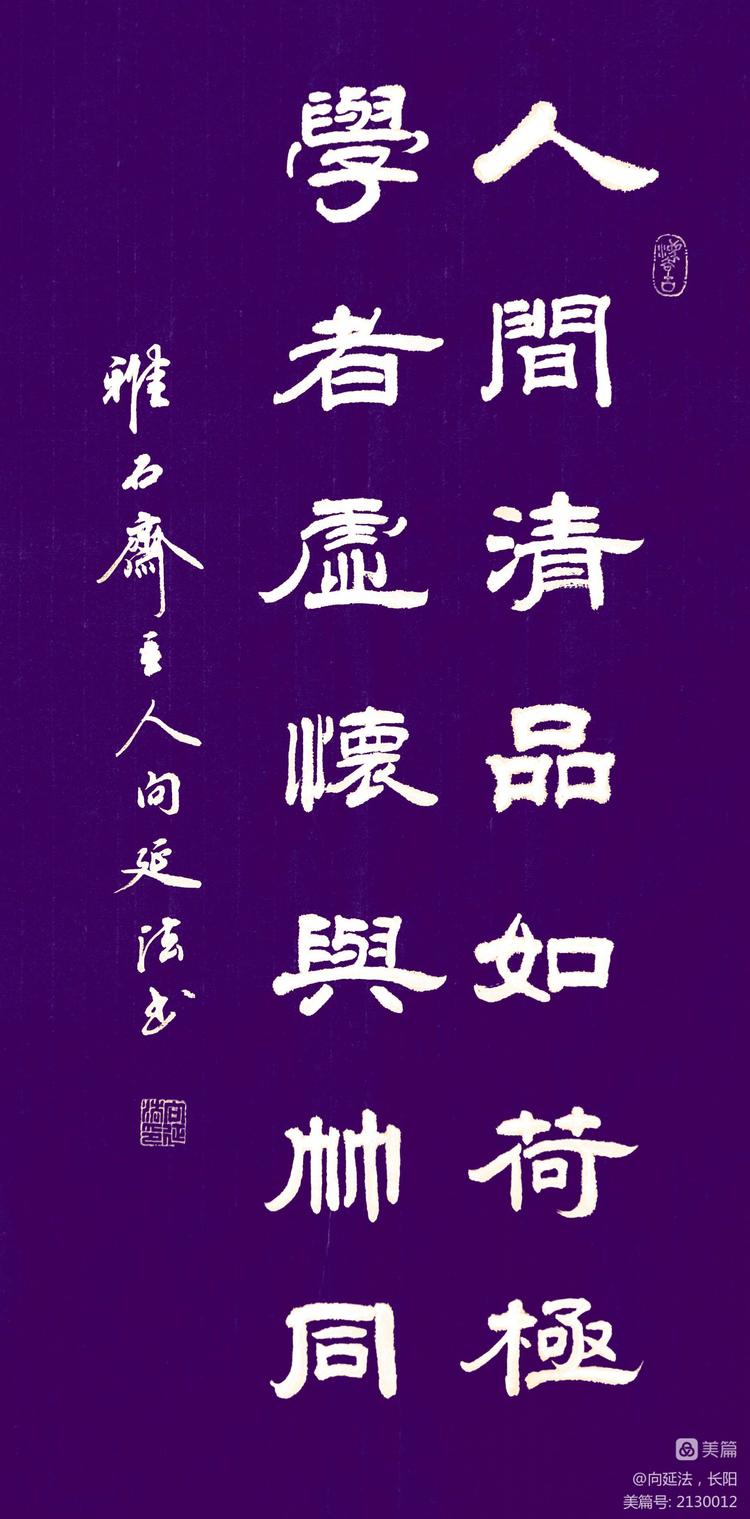 人間清品如荷極
學者虛懷與竹同
雅石齋主人向延法书
美篇
@向延法，长阳
美篇号: 2130012